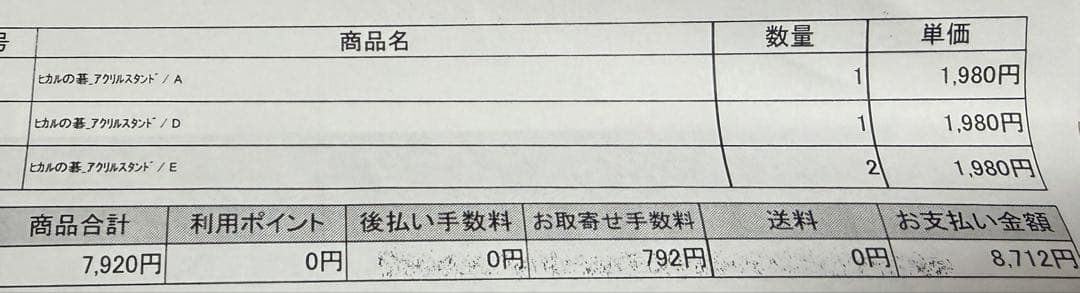 号 商品名 数量 単価
ヒカルの碁_アクリルスタンド / A 1 1,980円
ヒカルの碁_アクリルスタンド / D 1 1,980円
ヒカルの碁_アクリルスタンド / E 2 1,980円
商品合計 利用ポイント 後払い手数料 お取寄せ手数料 送料 お支払い金額
7,920円 0円 0円 792円 0円 8,712円